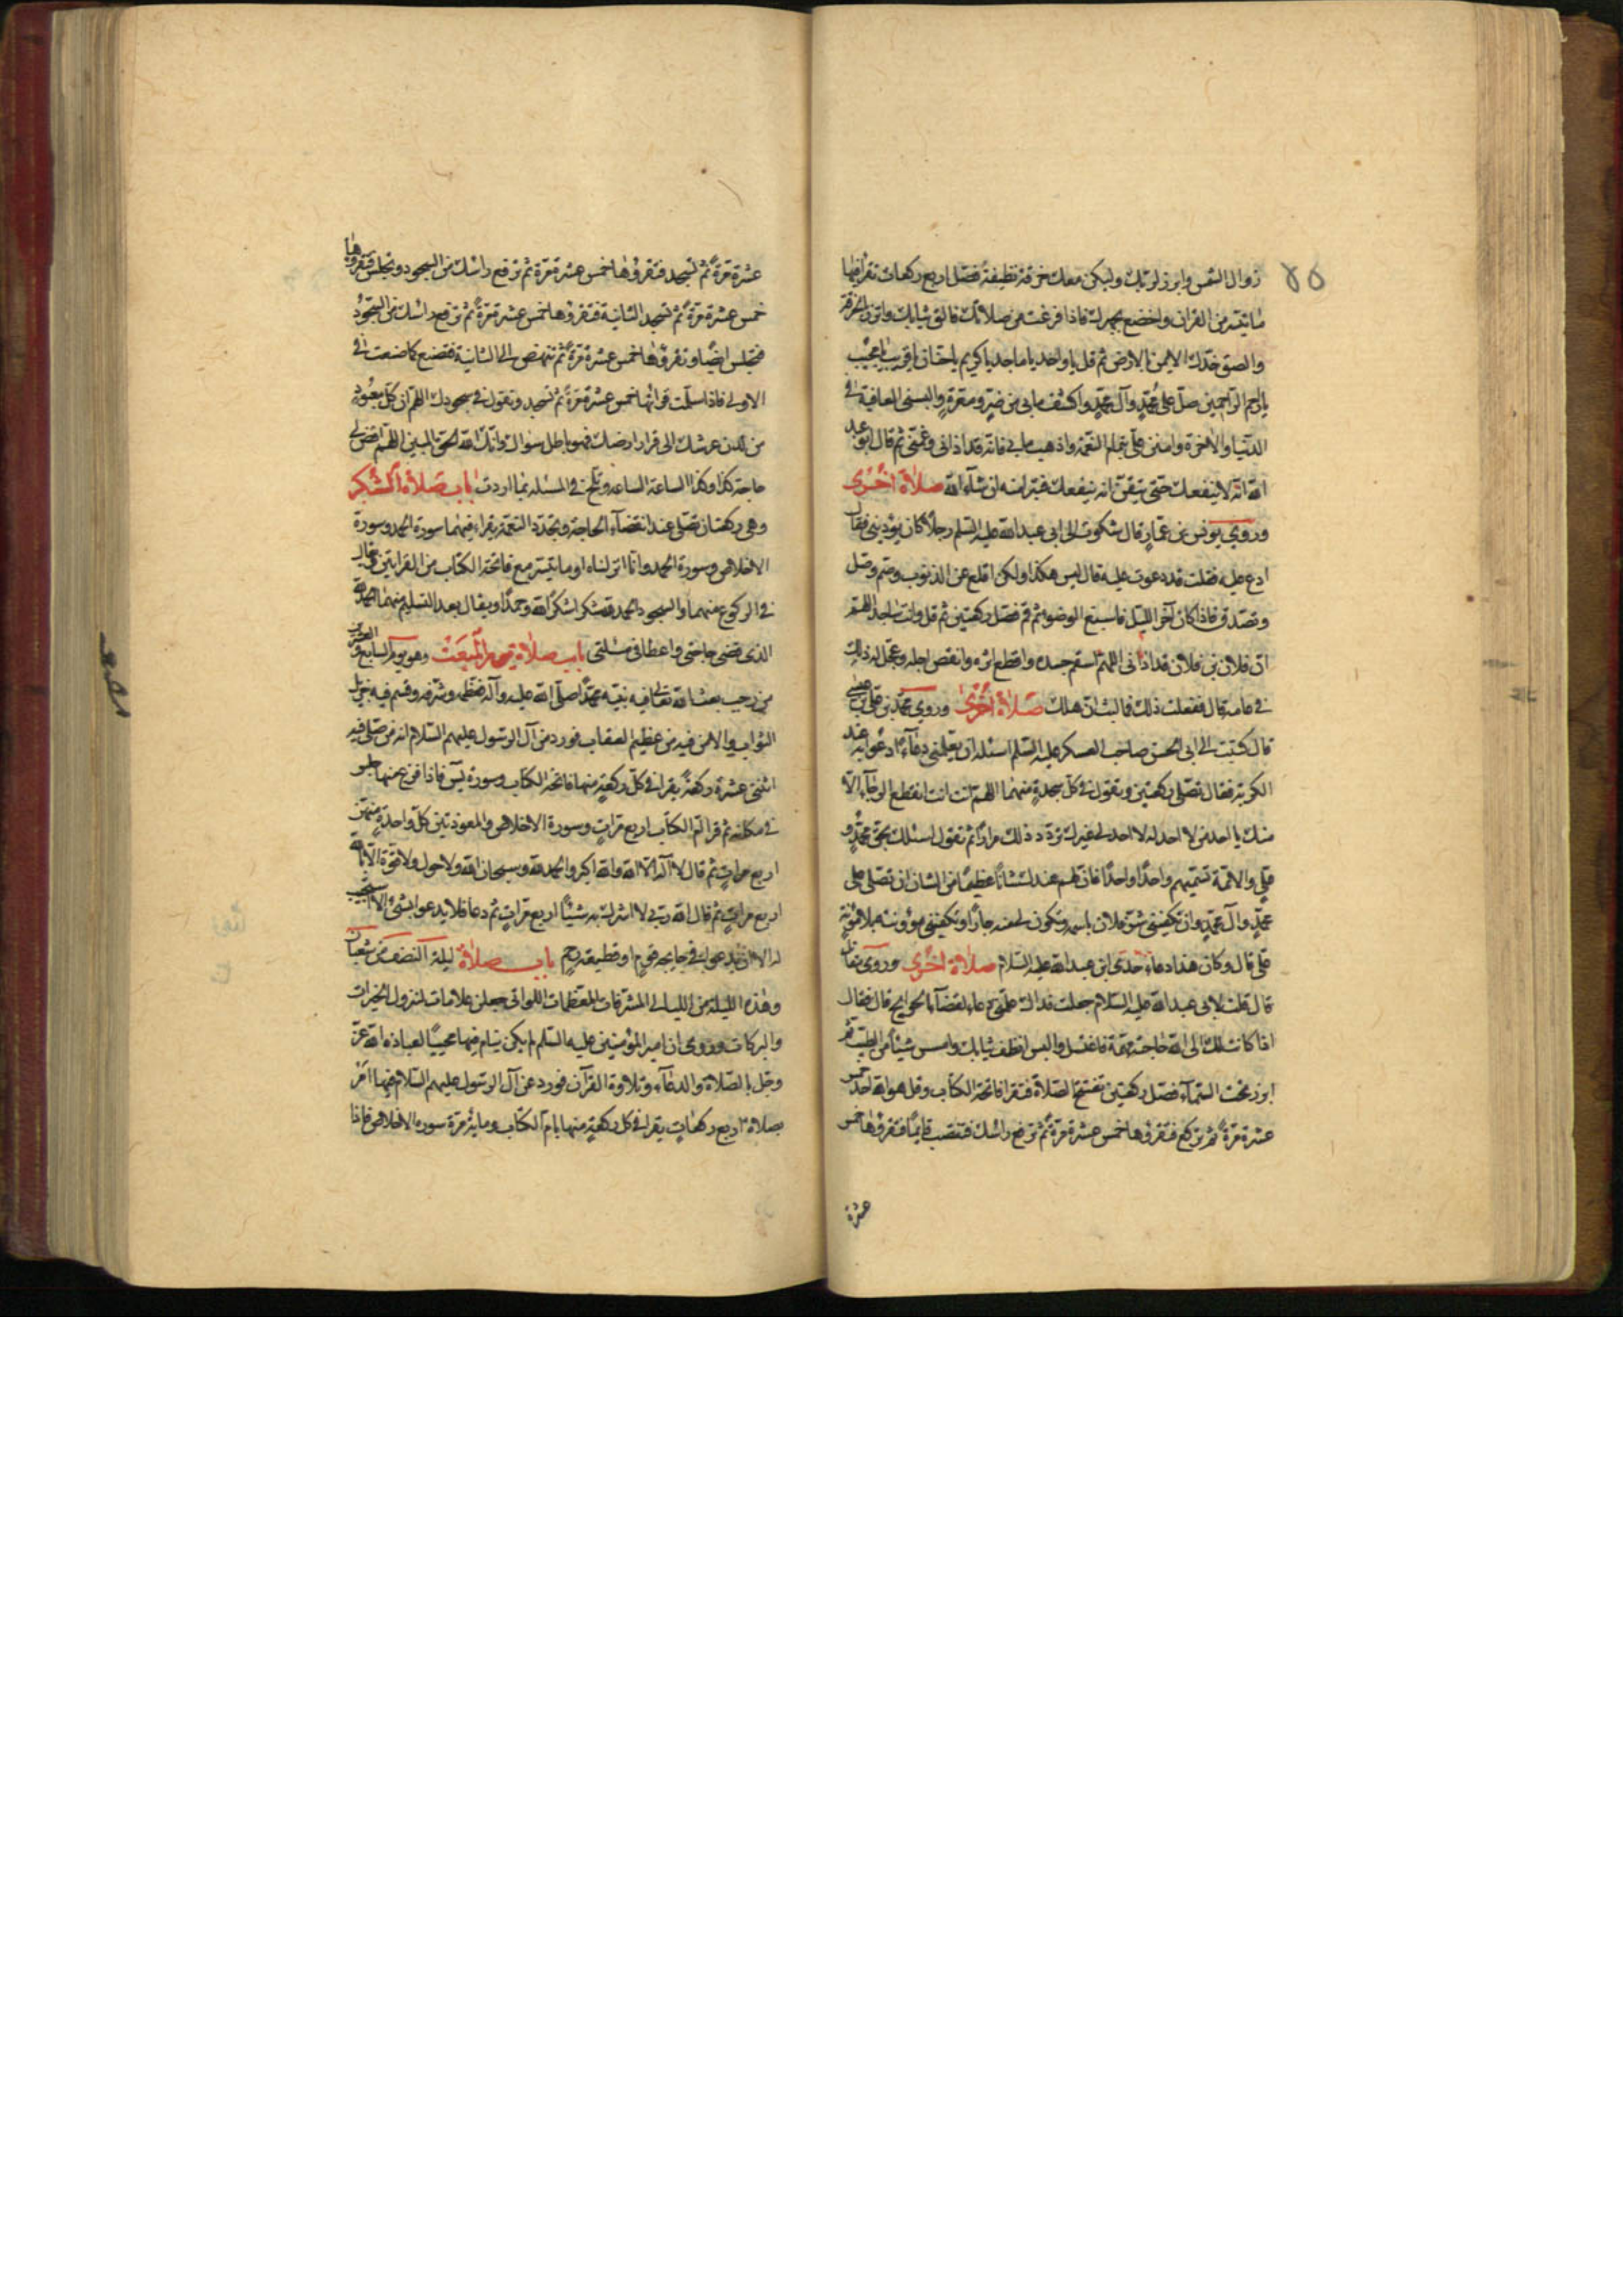 زوال الشمس وابرز لربك وليكن معك خرقة نظيفة فصل اربع ركعات تقرأ فيها
ما تيسر من القران واخضع بجهرك فاذا فرغت من صلاتك فالق ثيابك واتزر بالخرقة
والصق خدك الايمن بالارض ثم قل يا واحد يا ماجد يا كريم يا حنان يا قريب يا مجيب
يا ارحم الراحمين صل على محمد وآل محمد واكشف ما بي من ضر ومعرة والبسنى العافية في
الدنيا والاخرة وامنن على بتمام النعمة واذهب ما بي فانه قد اذانى وغمنى ثم قال ابو عبد
الله انه لا ينفعك حتى تتيقن انه ينفعك فتبرأ منه ان شآء الله صلاة اخرى
وروى يونس بن عمار قال شكوت الى ابي عبد الله عليه السلم رجلا كان يؤذينى فقال
ادع عليه فقلت قد دعوت عليه قال ليس هكذا ولكن اقلع عن الذنوب وصم وصل
وتصدق فاذا كان آخر الليل فاسبغ الوضوء ثم قم فصل ركعتين ثم قل وانت ساجد اللهم
ان فلان بن فلان قد اذانى اللهم اسقم جسده واقطع اثره وانقص اجله وعجل له ذلك
في عامه قال ففعلت ذلك فما لبث ان هلك صلاة اخرى وروى محمد بن على بن عيسى
قال كتبت الى ابي الحسن صاحب العسكر عليه السلم اسئله ان يعلمنى دعآء ادعو به عند
الكربة فقال تصلى ركعتين وتقول في كل سجدة منهما اللهم انت انت انقطع الرجآء الا
منك يا احد من لا احد له لا احد لي غيرك تردد ذلك مرارا ثم تقول اسئلك بحق محمد و
على والائمة تسميهم واحدا واحدا فان لهم عندك شأنا عظيما من الشان ان تصلى على
محمد وآل محمد وان تكفينى شر فلان باسمه وتكون لى منه جارا وتكفينى مؤونته بلا مؤنة
على قال وكان هذا دعاء جدى ابى عبد الله عليه السلام صلاة اخرى وروى مقاتل
قال قلت لابي عبد الله عليه السلام جعلت فداك علمنى دعاء لقضآء الحوايج قال فقال
اذا كانت لك الى الله حاجة مهمة فاغتسل والبس انظف ثيابك وامسس شيئا من الطيب ثم
ابرز تحت السمآء فصل ركعتين تفتتح الصلاة فتقرا فاتحة الكتاب وقل هو الله احد خمس
عشرة مرة ثم تركع فتقرؤها خمس عشرة مرة ثم ترفع راسك فتنتصب قايما فتقرؤها خمس
عشرة
عشرة مرة ثم تسجد فتقرؤها خمس عشرة مرة ثم ترفع راسك من السجود وتجلس فتقروها
خمس عشرة مرة ثم تسجد الثانية فتقرؤها خمس عشرة مرة ثم ترفع راسك من السجود
فتجلس ايضا وتقرؤها خمس عشرة مرة ثم تنهض الى الثانية فتصنع كما صنعت في
الاولى فاذا سلمت قراتها خمس عشرة مرة ثم تسجد وتقول في سجودك اللهم ان كل معبود
من لدن عرشك الى قرار ارضك فهو باطل سواك وانك الله الحق المبين اللهم اقض لي
حاجة كذا وكذا الساعة الساعة وتلح في المسئلة بما اردت باب صلاة الشكر
وهى ركعتان تصلى عند انقضآء الحاجة وتجدد النعمة يقراء فيهما سورة الحمد وسورة
الاخلاص وسورة الحمد وانا انزلناه او ما تيسر مع فاتحة الكتاب من القرا ويقال
في الركوع منهما والسجود الحمد لله شكرا شكرا لله وحمدا ويقال بعد التسليم منهما الحمد لله
الذى قضى حاجتى واعطانى مسئلتى باب صلاة يوم المبعث وهو يوم السابع والعشرين
من رجب بعث الله تعالى فيه نبيه محمدا صلى الله عليه وآله فعظمه وشرفه وقسم فيه جزيل
الثواب والامن فيه من عظيم العقاب فورد من آل الرسول عليهم السلام انه من صلى فيه
اثنتى عشرة ركعة يقرا في كل ركعة منها فاتحة الكتاب وسورة يس فاذا فرغ منها جلس
في مكانه ثم قرا ام الكتاب اربع مرات وسورة الاخلاص والمعوذتين كل واحدة منهن
اربع مرات ثم قال لا اله الا الله والله اكبر والحمد لله وسبحان الله ولا حول ولا قوة الا بالله
اربع مرات ثم قال الله ربي لا اشرك به شيئا اربع مرات ثم دعا فلا يدعو بشئ الا استجيب
له الا ان يدعو في جايحة قوم او قطيعة رحم باب صلاة ليلة النصف من شعبان
وهذه الليلة من الليالى المشرفات المعظمات اللواتى جعلن علامات لنزول الخيرات
والبركات وروى ان امير المؤمنين عليه السلم لم يكن ينام فيها محييا لعبادة الله عز
وجل بالصلاة والدعآء وتلاوة القرآن فورد عن آل الرسول عليهم السلام فيها امر
بصلاة اربع ركعات يقرا في كل ركعة منها بام الكتاب ومائة مرة سورة الاخلاص فاذا